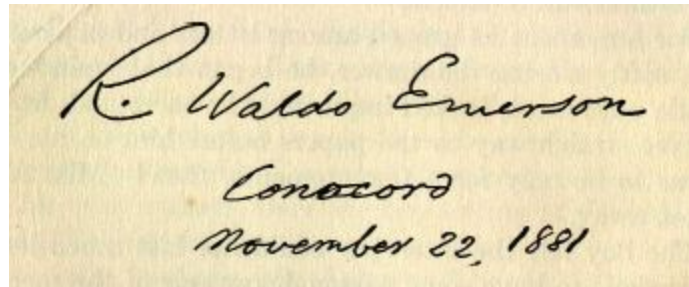 R. Waldo Emerson
Conocord
November 22, 1881